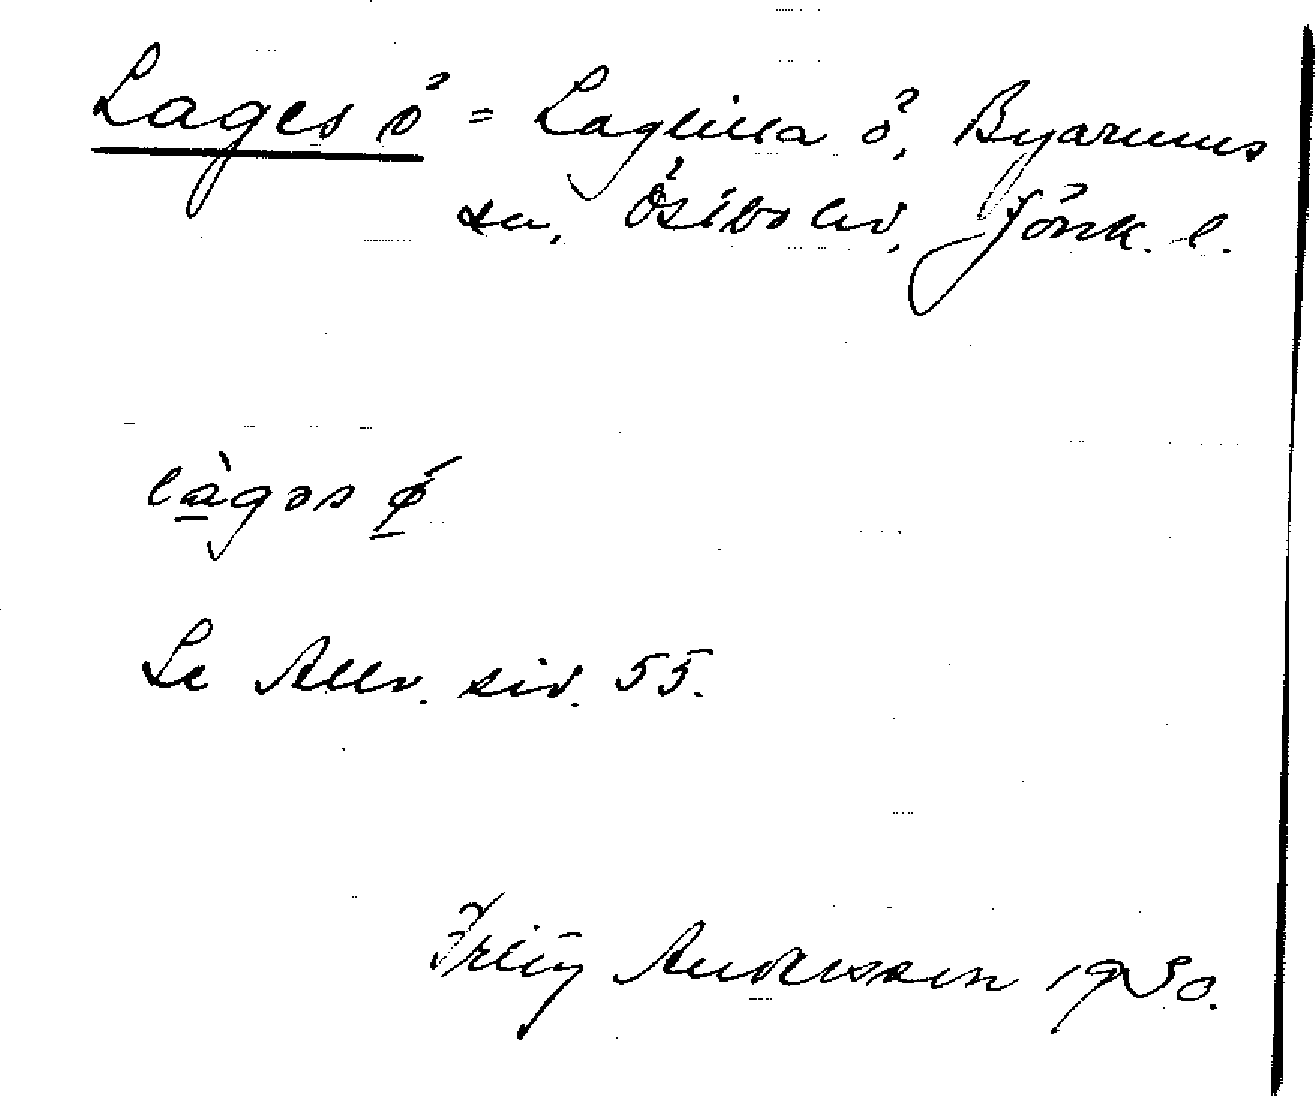 Lages ö = Laglilla ö, Byarums
sn, Östbo hd, Jönk. l.
làgəs ǿ
Se Allv. sid. 55.
Andersson 1930.